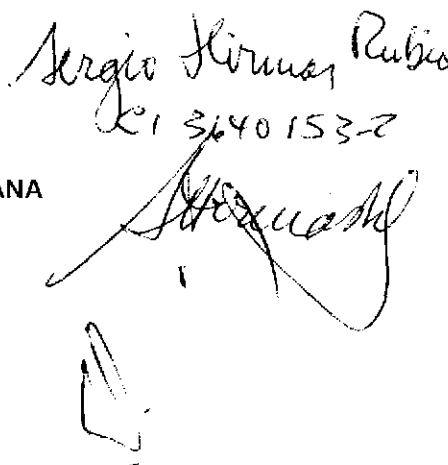 Sergio Hirmas Rubio
CI 3640153-2
ANA
SHirmas